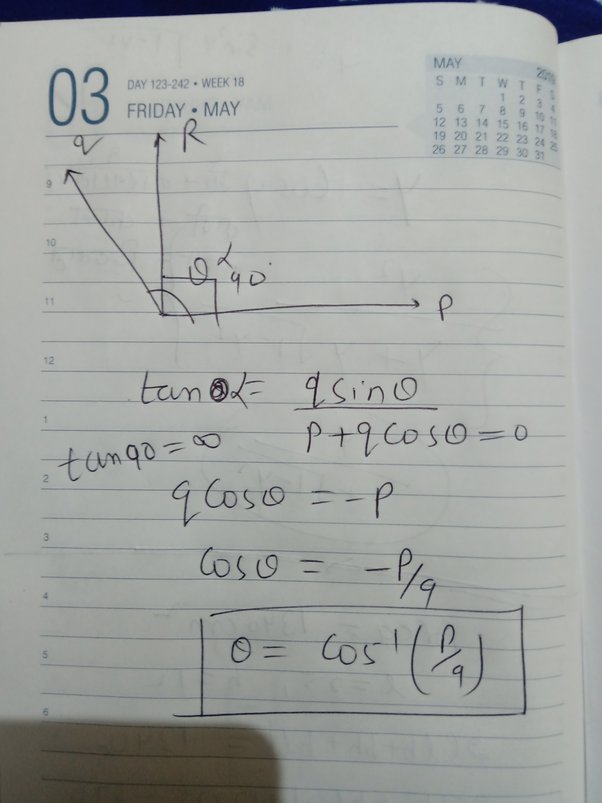 03
DAY 123-242 • WEEK 18
FRIDAY • MAY
MAY 2019
S M T W T F S
1 2 3 4
5 6 7 8 9 10 11
12 13 14 15 16 17 18
19 20 21 22 23 24 25
26 27 28 29 30 31
q R
9
10
θ α 90°
11
P
12
tan α = q sin θ
1
P + q cos θ = 0
tan 90 = ∞
2
q cos θ = -P
3
cos θ = -P/q
4
θ = cos⁻¹ (P/q)
5
6